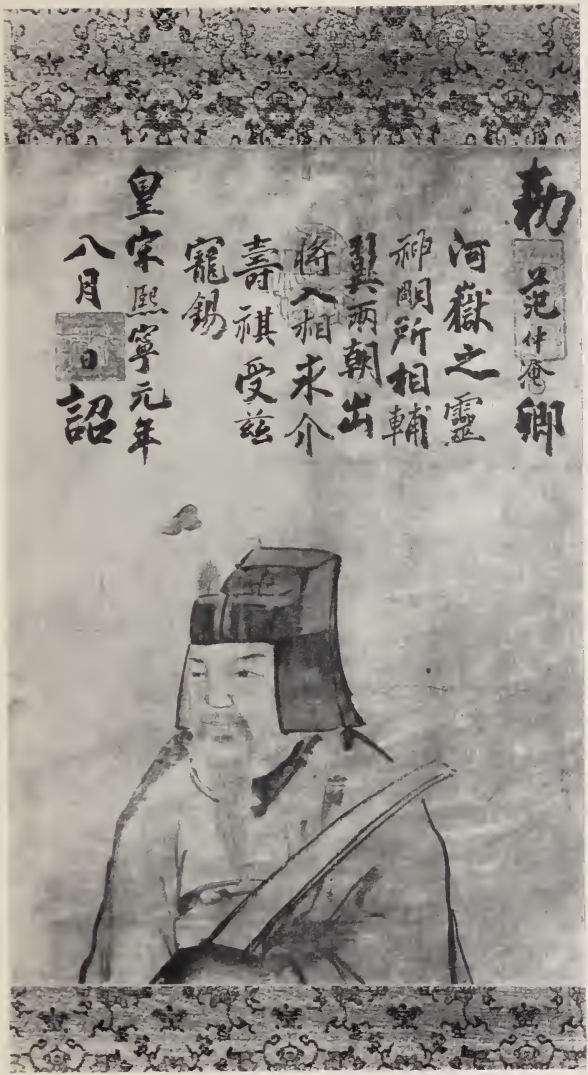 勅范仲淹卿
河嶽之靈
神明所相輔
翼兩朝出
將入相求介
壽祺受茲
寵錫
皇宋熙寧元年
八月日詔